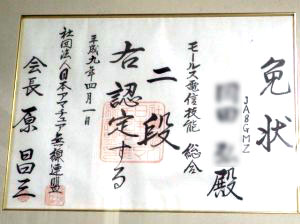 免状
JA8GMZ
殿
モールス電信技能 総合
二段
右認定する
平成九年四月一日
社団法人日本アマチュア無線連盟
会長 原 昌三